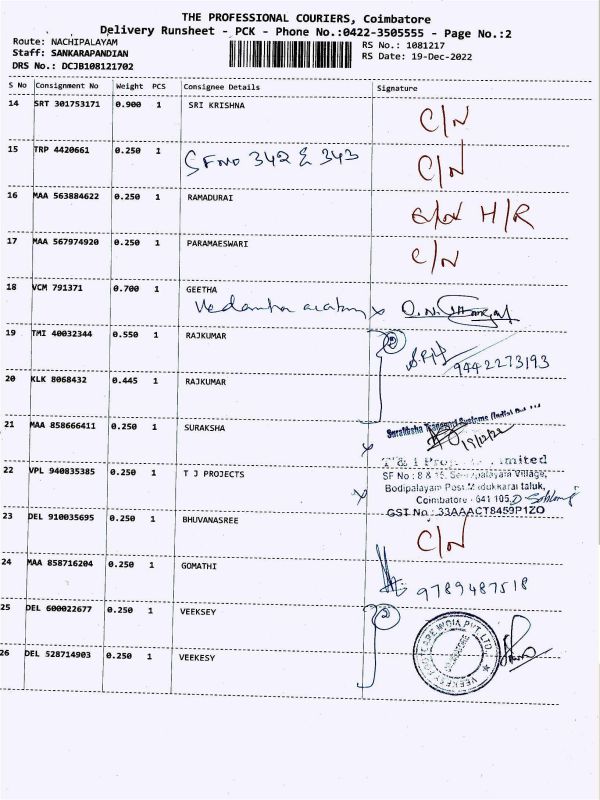 THE PROFESSIONAL COURIERS, Coimbatore
Delivery Runsheet - PCK - Phone No.:0422-3505555 - Page No.:2
Route: NACHIPALAYAM
RS No.: 1081217
Staff: SANKARAPANDIAN
RS Date: 19-Dec-2022
DRS No.: DCJB108121702
S No Consignment No Weight PCS Consignee Details Signature
14 SRT 301753171 0.900 1 SRI KRISHNA C/N
15 TRP 4420661 0.250 1 SF NO 342 & 343 C/N
16 MAA 563884622 0.250 1 RAMADURAI H/R
17 MAA 567974920 0.250 1 PARAMAESWARI C/N
18 VCM 791371 0.700 1 GEETHA
Vedantha
19 TMI 40032344 0.550 1 RAJKUMAR 2
9442273193
20 KLK 8068432 0.445 1 RAJKUMAR
21 MAA 858666411 0.250 1 SURAKSHA
Systems (India)
19/12/22
22 VPL 940835385 0.250 1 T J PROJECTS
Limited
SF No : 8 &
Village,
Bodipalayam Post, Madukkarai taluk,
Coimbatore - 641 105.
GST No : 33AAACT8459P1ZO
23 DEL 910035695 0.250 1 BHUVANASREE C/N
24 MAA 858716204 0.250 1 GOMATHI 9789487518
25 DEL 600022677 0.250 1 VEEKSEY 2
26 DEL 528714903 0.250 1 VEEKESY
INDIA PVT. LTD.